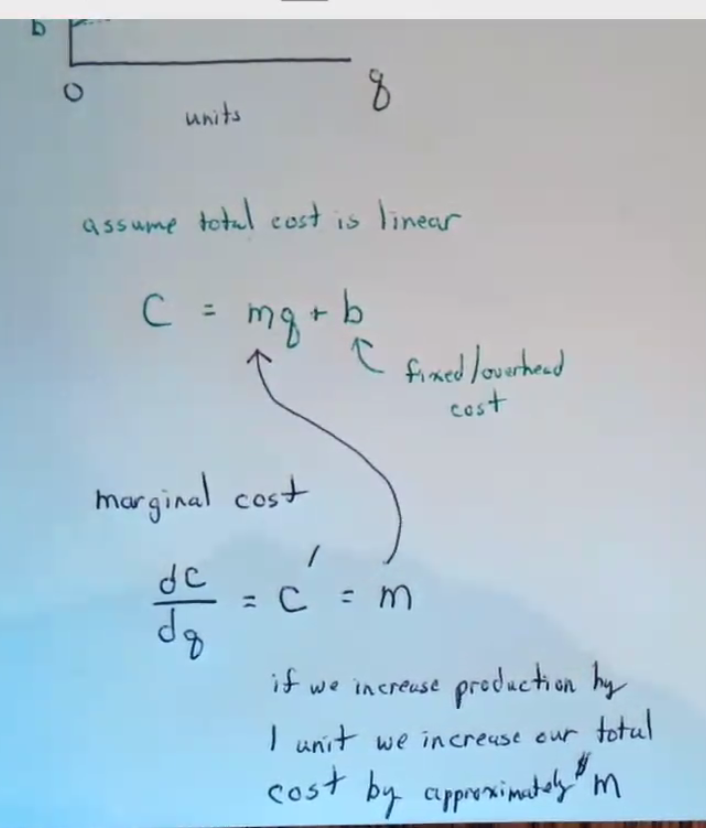 b
0
q
units
assume total cost is linear
C = mq + b
fixed/overhead
cost
marginal cost
dC/dq = C' = m
if we increase production by
1 unit we increase our total
cost by approximately $m